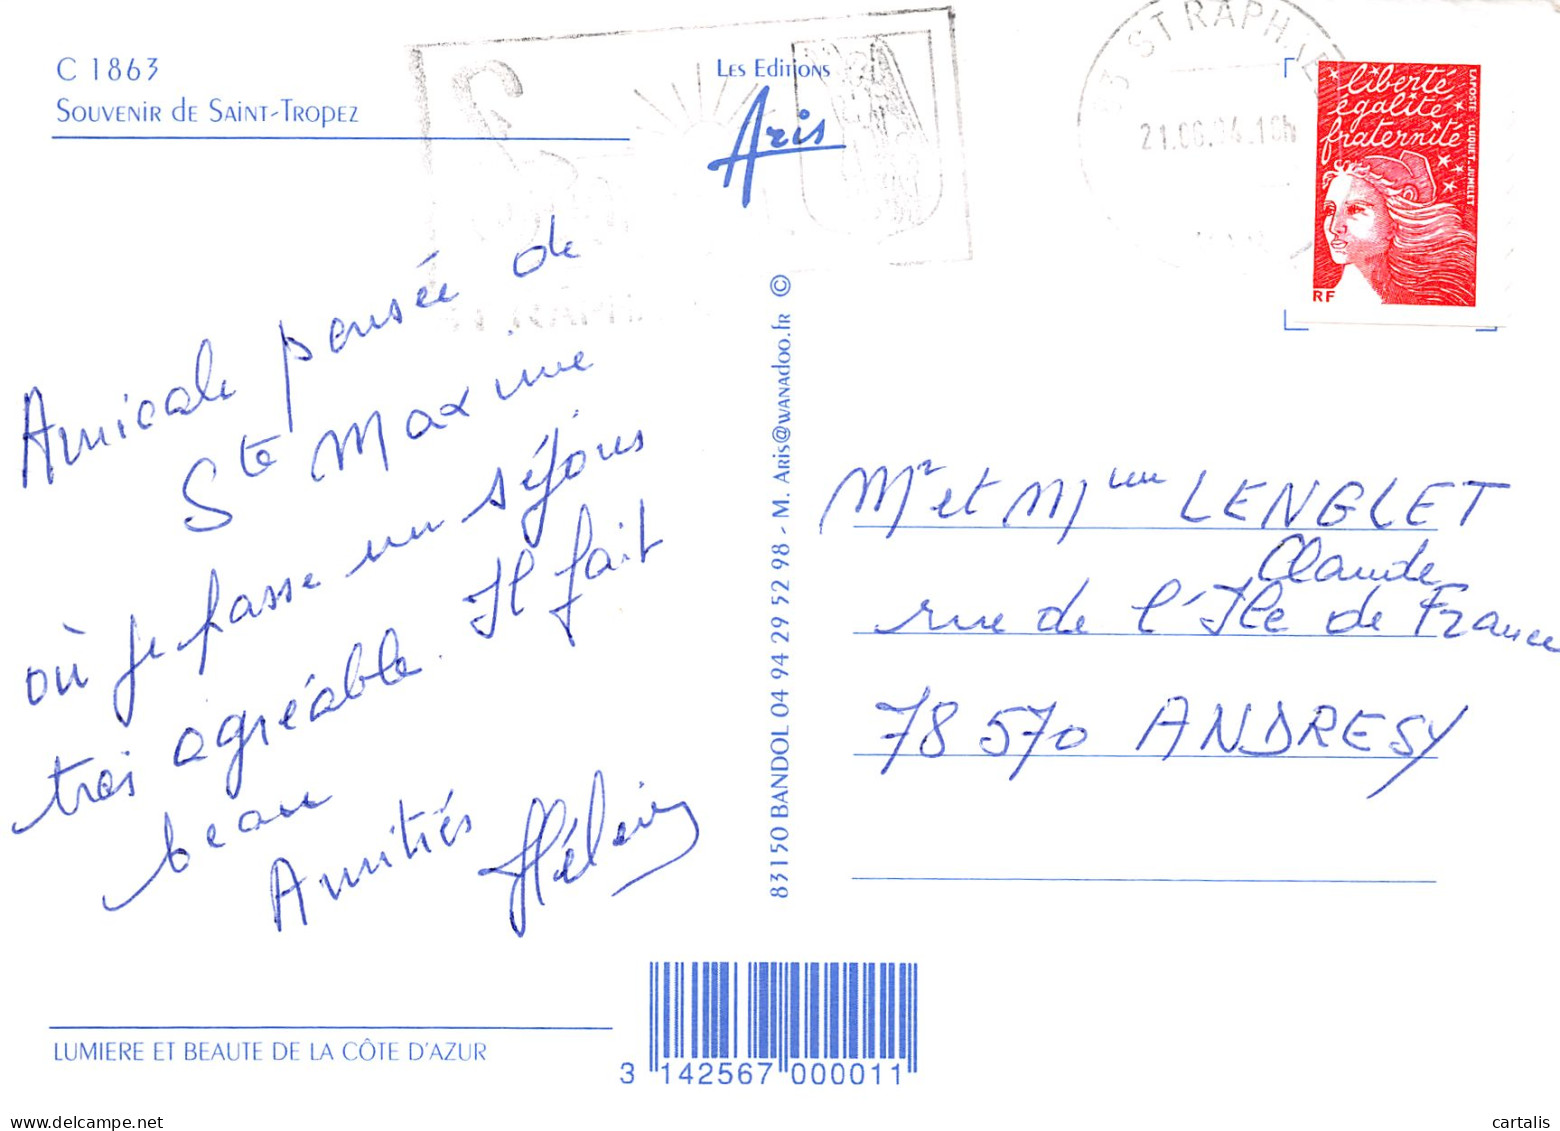 C 1863
Souvenir de Saint-Tropez
Les Editions
Aris
83 ST RAPHAEL
liberté
égalité
fraternité
LA POSTE LUQUET-JUMELET
RF
Amicale pensée de
Ste Maxime
où je passe un séjour
très agréable. Il fait
beau
Amitiés
83150 BANDOL 04 94 29 52 98 - M. Aris@wanadoo.fr ©
Mr et Mme LENGLET
Claude
rue de l'Ile de France
78570 ANDRESY
LUMIERE ET BEAUTE DE LA CÔTE D'AZUR
3 142567 000011
delcampe.net
cartalis